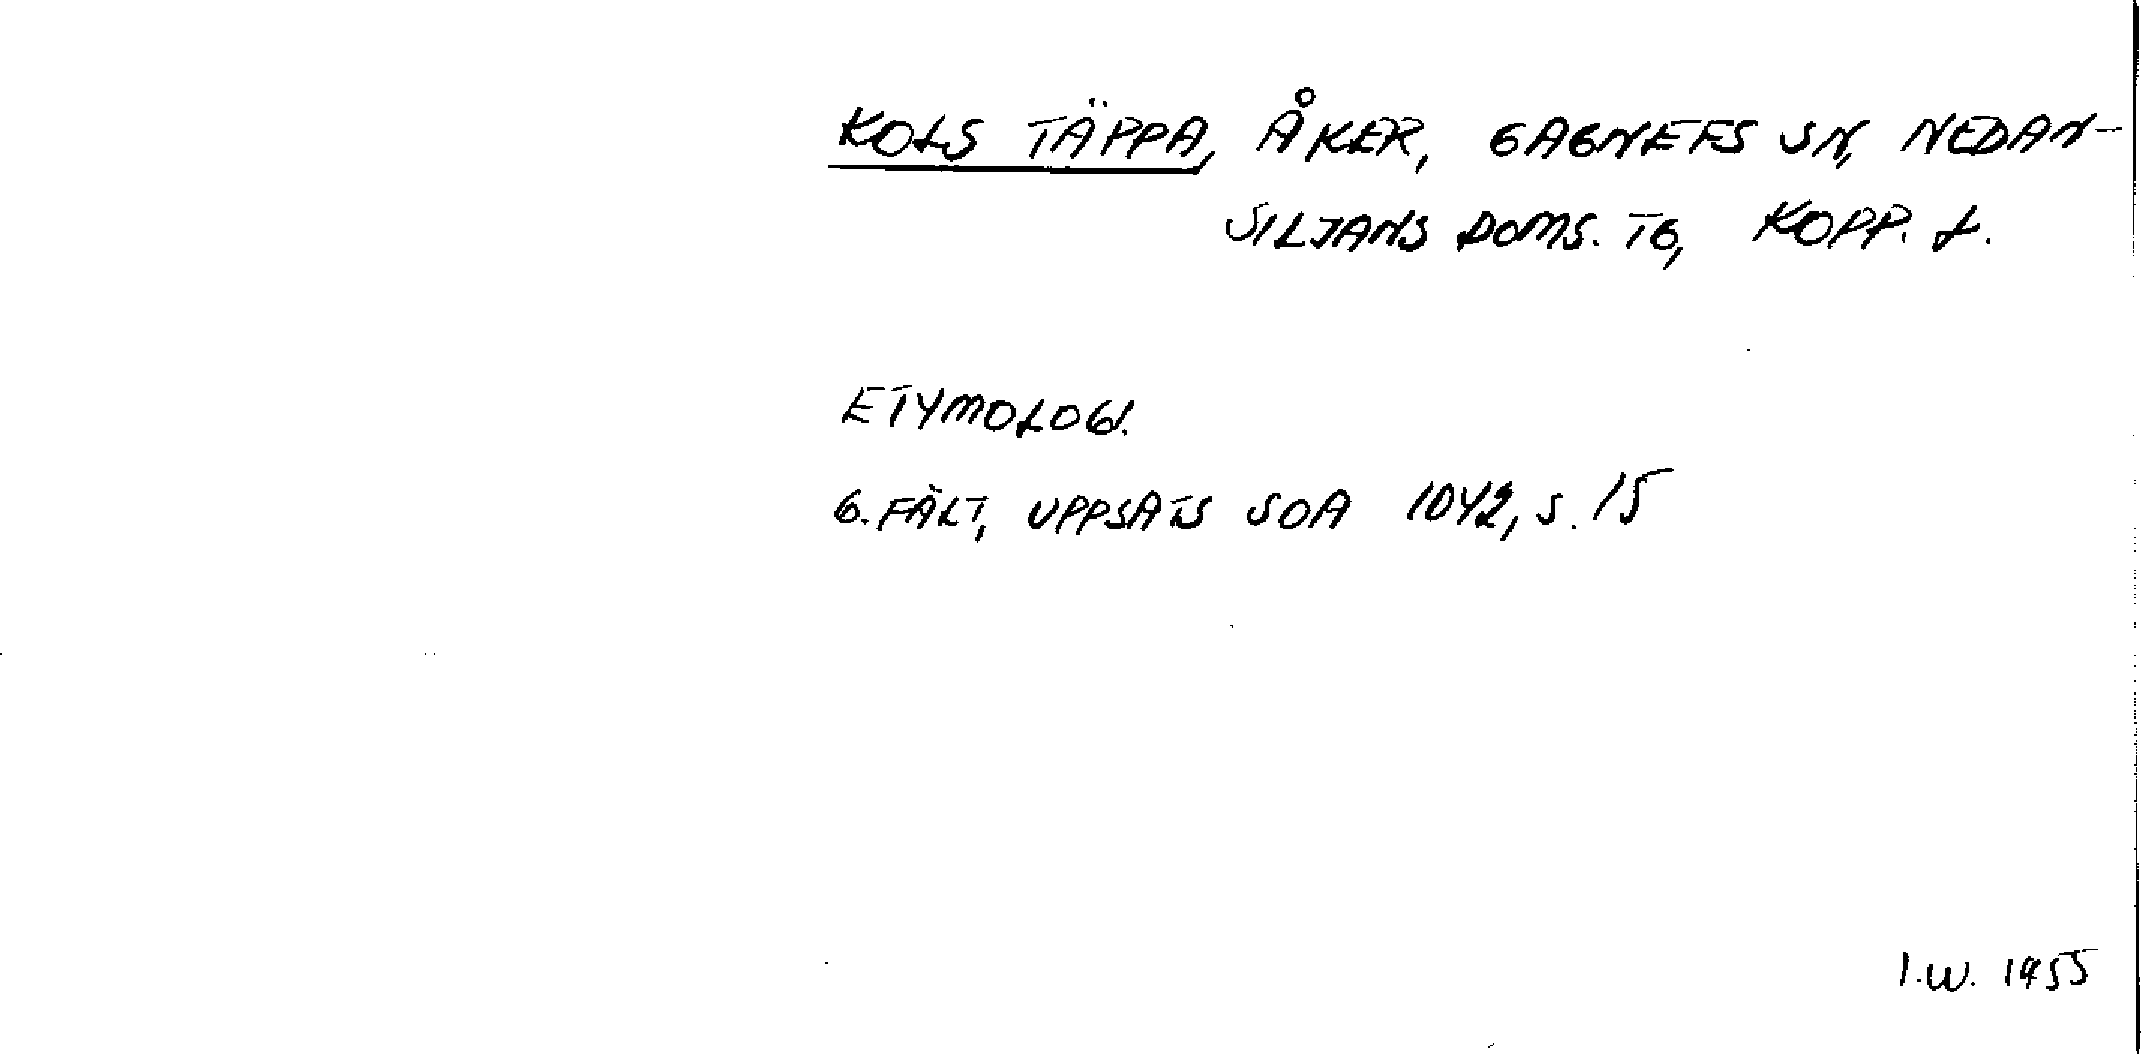 KOLS TÄPPA, ÅKER, GAGNEFS SN, NEDAN-
SILJANS DOMS. TG, KOPP. L.
ETYMOLOGI.
G. FÄLT, UPPSATS SOA 1042, S. 15
I.W. 1955